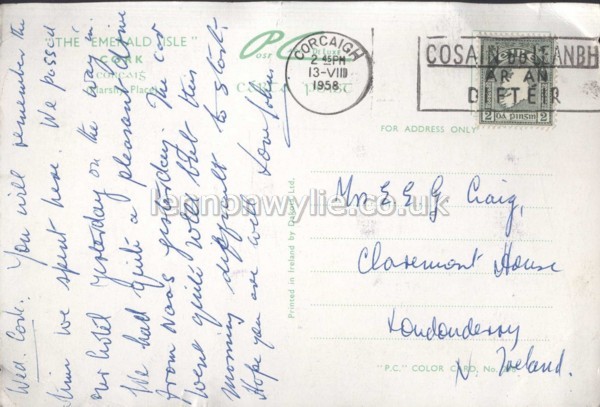 "THE "EMERALD ISLE"
CORK
CORCAIGH
Marsh Place
PC
POST De Luxe
CARTA POIST
CORCAIGH
2 45PM
13-VIII
1958
COSAIN DO LEANBH
AR AN
DIFTEIR
2 DÁ PINSIN 2
FOR ADDRESS ONLY
Wed. Cork. You will remember the
time we spent here. We passed
our hotel yesterday on the way in.
We had quite a pleasant drive
from Naas yesterday. The car
went quite well but this
morning difficult to start.
Hope you are well. Love John
Mr E E G Craig,
Claremont House
Londonderry
N. Ireland.
Printed in Ireland by Ltd.
"P.C." COLOR CARD, No.
lennonwylie.co.uk